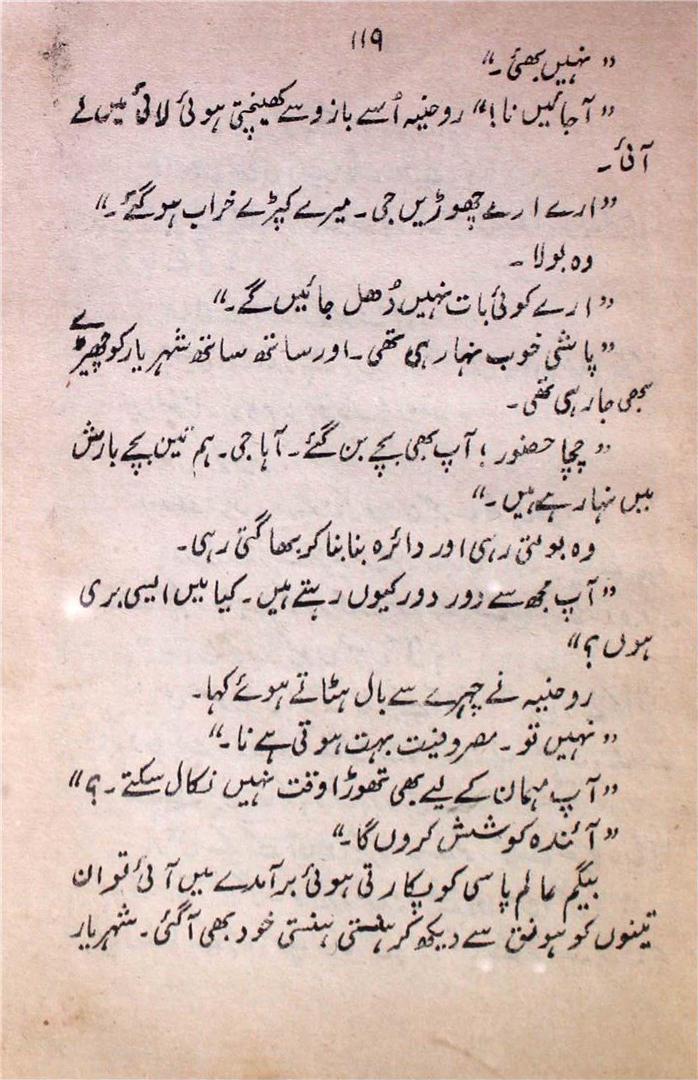 ۱۱۹
” نہیں بھئی ۔“
” آجائیں نا!“ روحنیہ اُسے بازو سے کھینچتی ہوئی لائی میں لے
آئی ۔
” ارے ارے چھوڑیں جی ۔ میرے کپڑے خراب ہو گئے ۔“
وہ بولا ۔
” ارے کوئی بات نہیں دُھل جائیں گے ۔“
” پاشی خوب نہا رہی تھی ۔ اور ساتھ ساتھ شہریار کو چھیڑے
بھی جا رہی تھی ۔
” چچا حضور ! آپ بھی بچے بن گئے ۔ آہا جی ۔ ہم تین بچے بارش
میں نہا رہے ہیں ۔“
وہ بولتی رہی اور دائرہ بنا بنا کر بھاگتی رہی ۔
” آپ مجھ سے دور دور کیوں رہتے ہیں ۔ کیا میں ایسی بری
ہوں ؟“
روحنیہ نے چہرے سے بال ہٹاتے ہوئے کہا ۔
” نہیں تو ۔ مصروفیت بہت ہوتی ہے نا ۔“
” آپ مہمان کے لیے بھی تھوڑا وقت نہیں نکال سکتے ۔ ؟“
” آئندہ کوشش کروں گا ۔“
بیگم عالم پاسی کو پکارتی ہوئی برآمدے میں آئی تو ان
تینوں کو ہونق سے دیکھ کر ہنستی ہنستی خود بھی آگئی ۔ شہریار